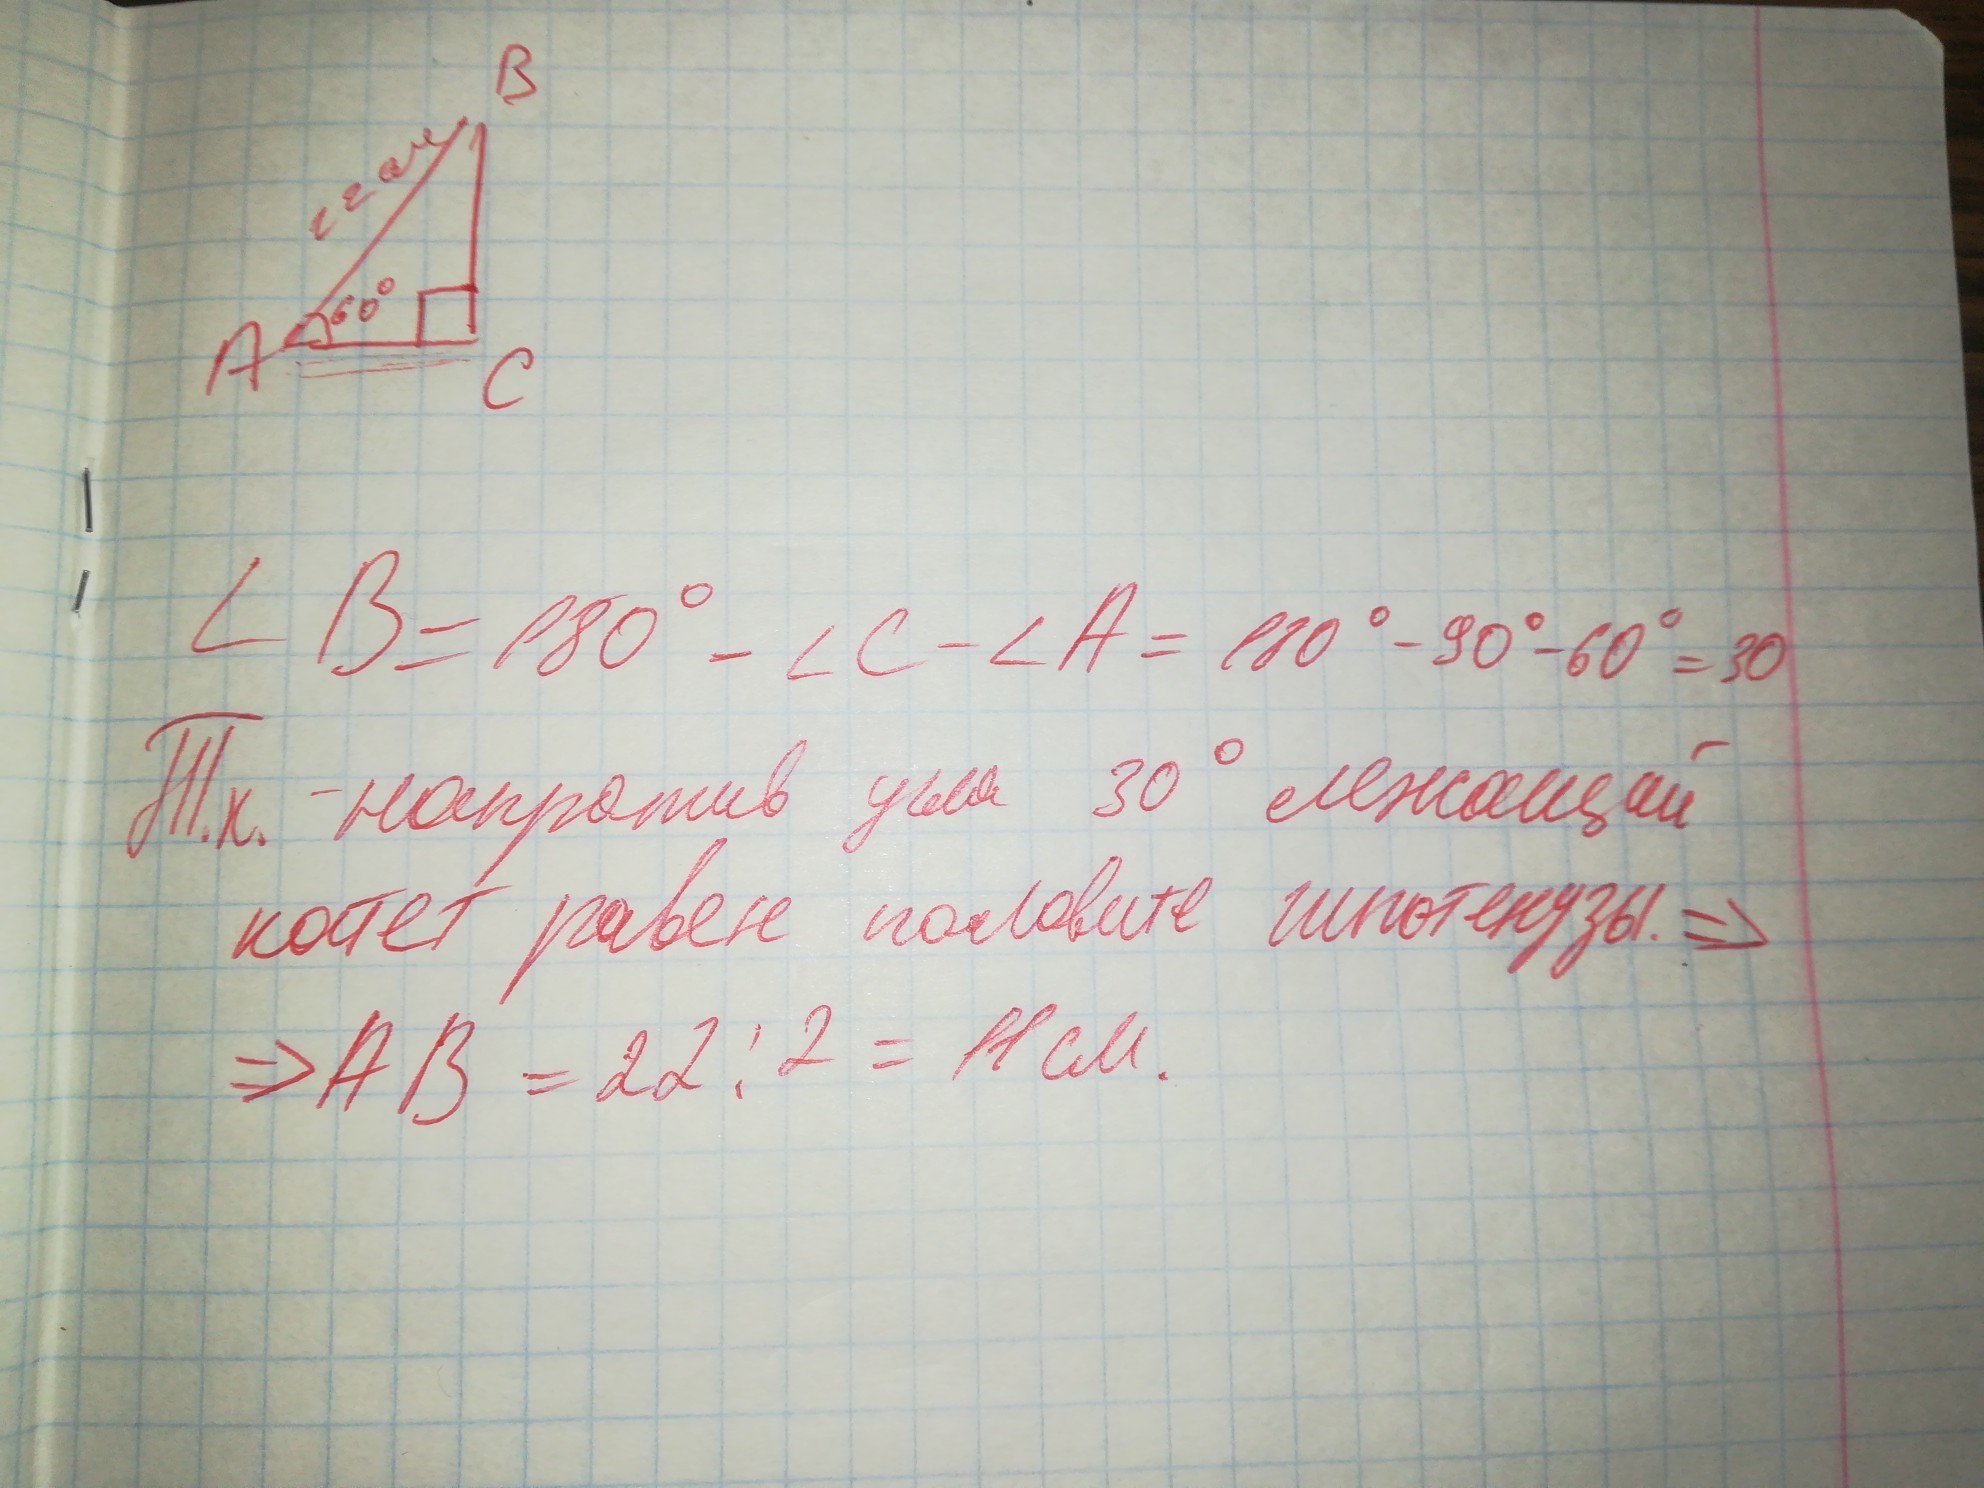 B
22 см
60°
A
C
∠B=180°-∠C-∠A=180°-90°-60°=30
Т.к. напротив угла 30° лежащий
катет равен половине гипотенузы.⇒
⇒AB=22:2=11см.